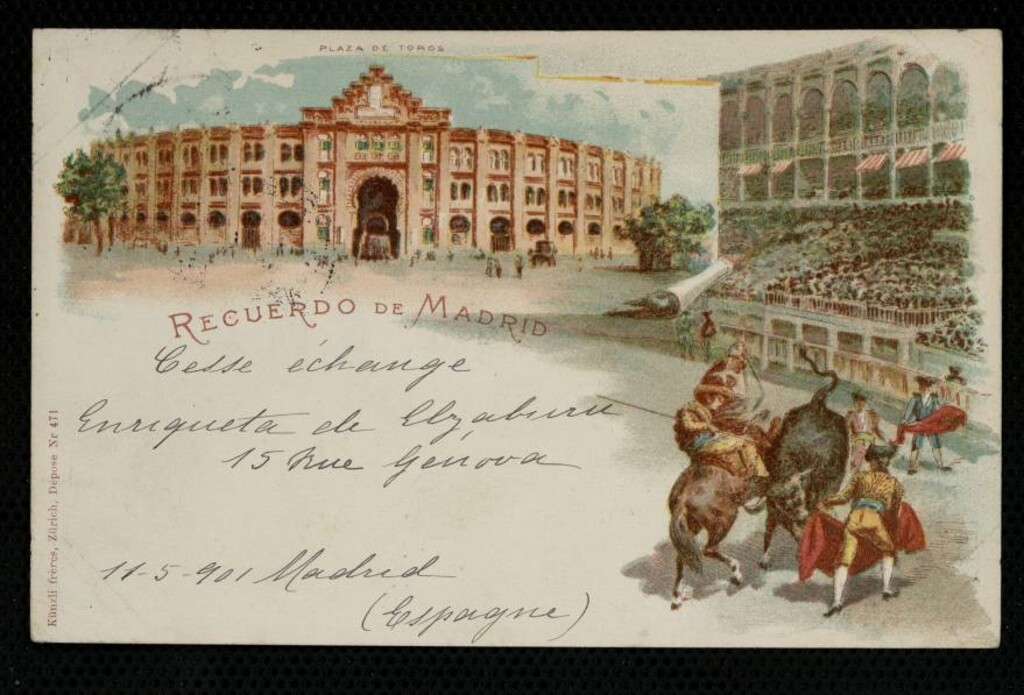 PLAZA DE TOROS
RECUERDO DE MADRID
Cesse échange
Enriqueta de Elzaburu
15 Rue Génova
11-5-901 Madrid
(Espagne)
Künzli frères, Zürich, Dépose Nr 471